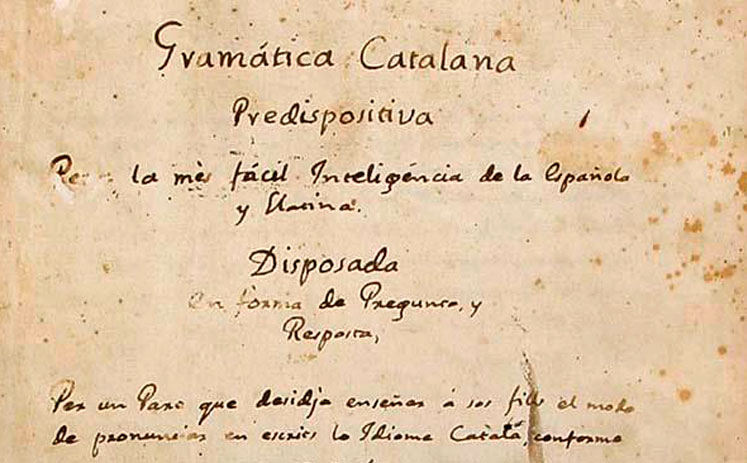 Gramática Catalana
Predispositiva
Per a la mès fácil Inteligéncia de la Española
y Llatina.
Disposada
en forma de Pregunta, y
Resposta,
Per un Pare que desidja enseñar á sos fills el modo
de pronunciar en escrits lo Idioma Catalá, conforme